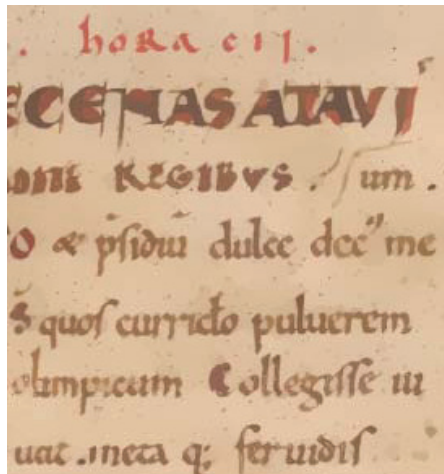 . horacii.
ECENAS ATAVI
REGIBVS . um .
O & p̄sidiū dulce dec᷒ me
S quos curriclo puluerem
olimpicum Collegisse iu
uat .meta q; feruidis